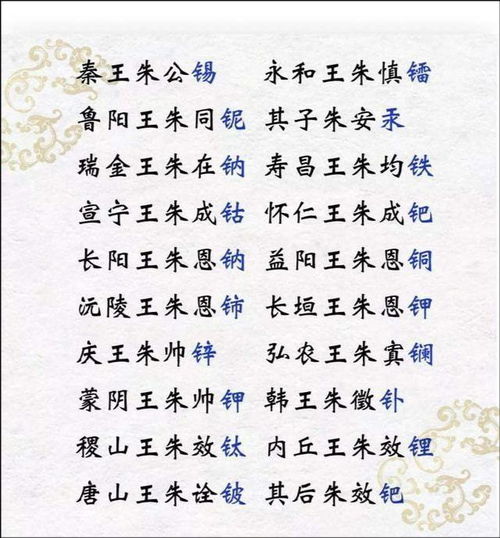 秦王朱公锡 永和王朱慎镭
鲁阳王朱同铌 其子朱安汞
瑞金王朱在钠 寿昌王朱均铁
宣宁王朱成钴 怀仁王朱成钯
长阳王朱恩钠 益阳王朱恩铜
沅陵王朱恩铈 长垣王朱恩钾
庆王朱帅锌 弘农王朱寘镧
蒙阴王朱帅钾 韩王朱徵钋
稷山王朱效钛 内丘王朱效锂
唐山王朱诠铍 其后朱效钯